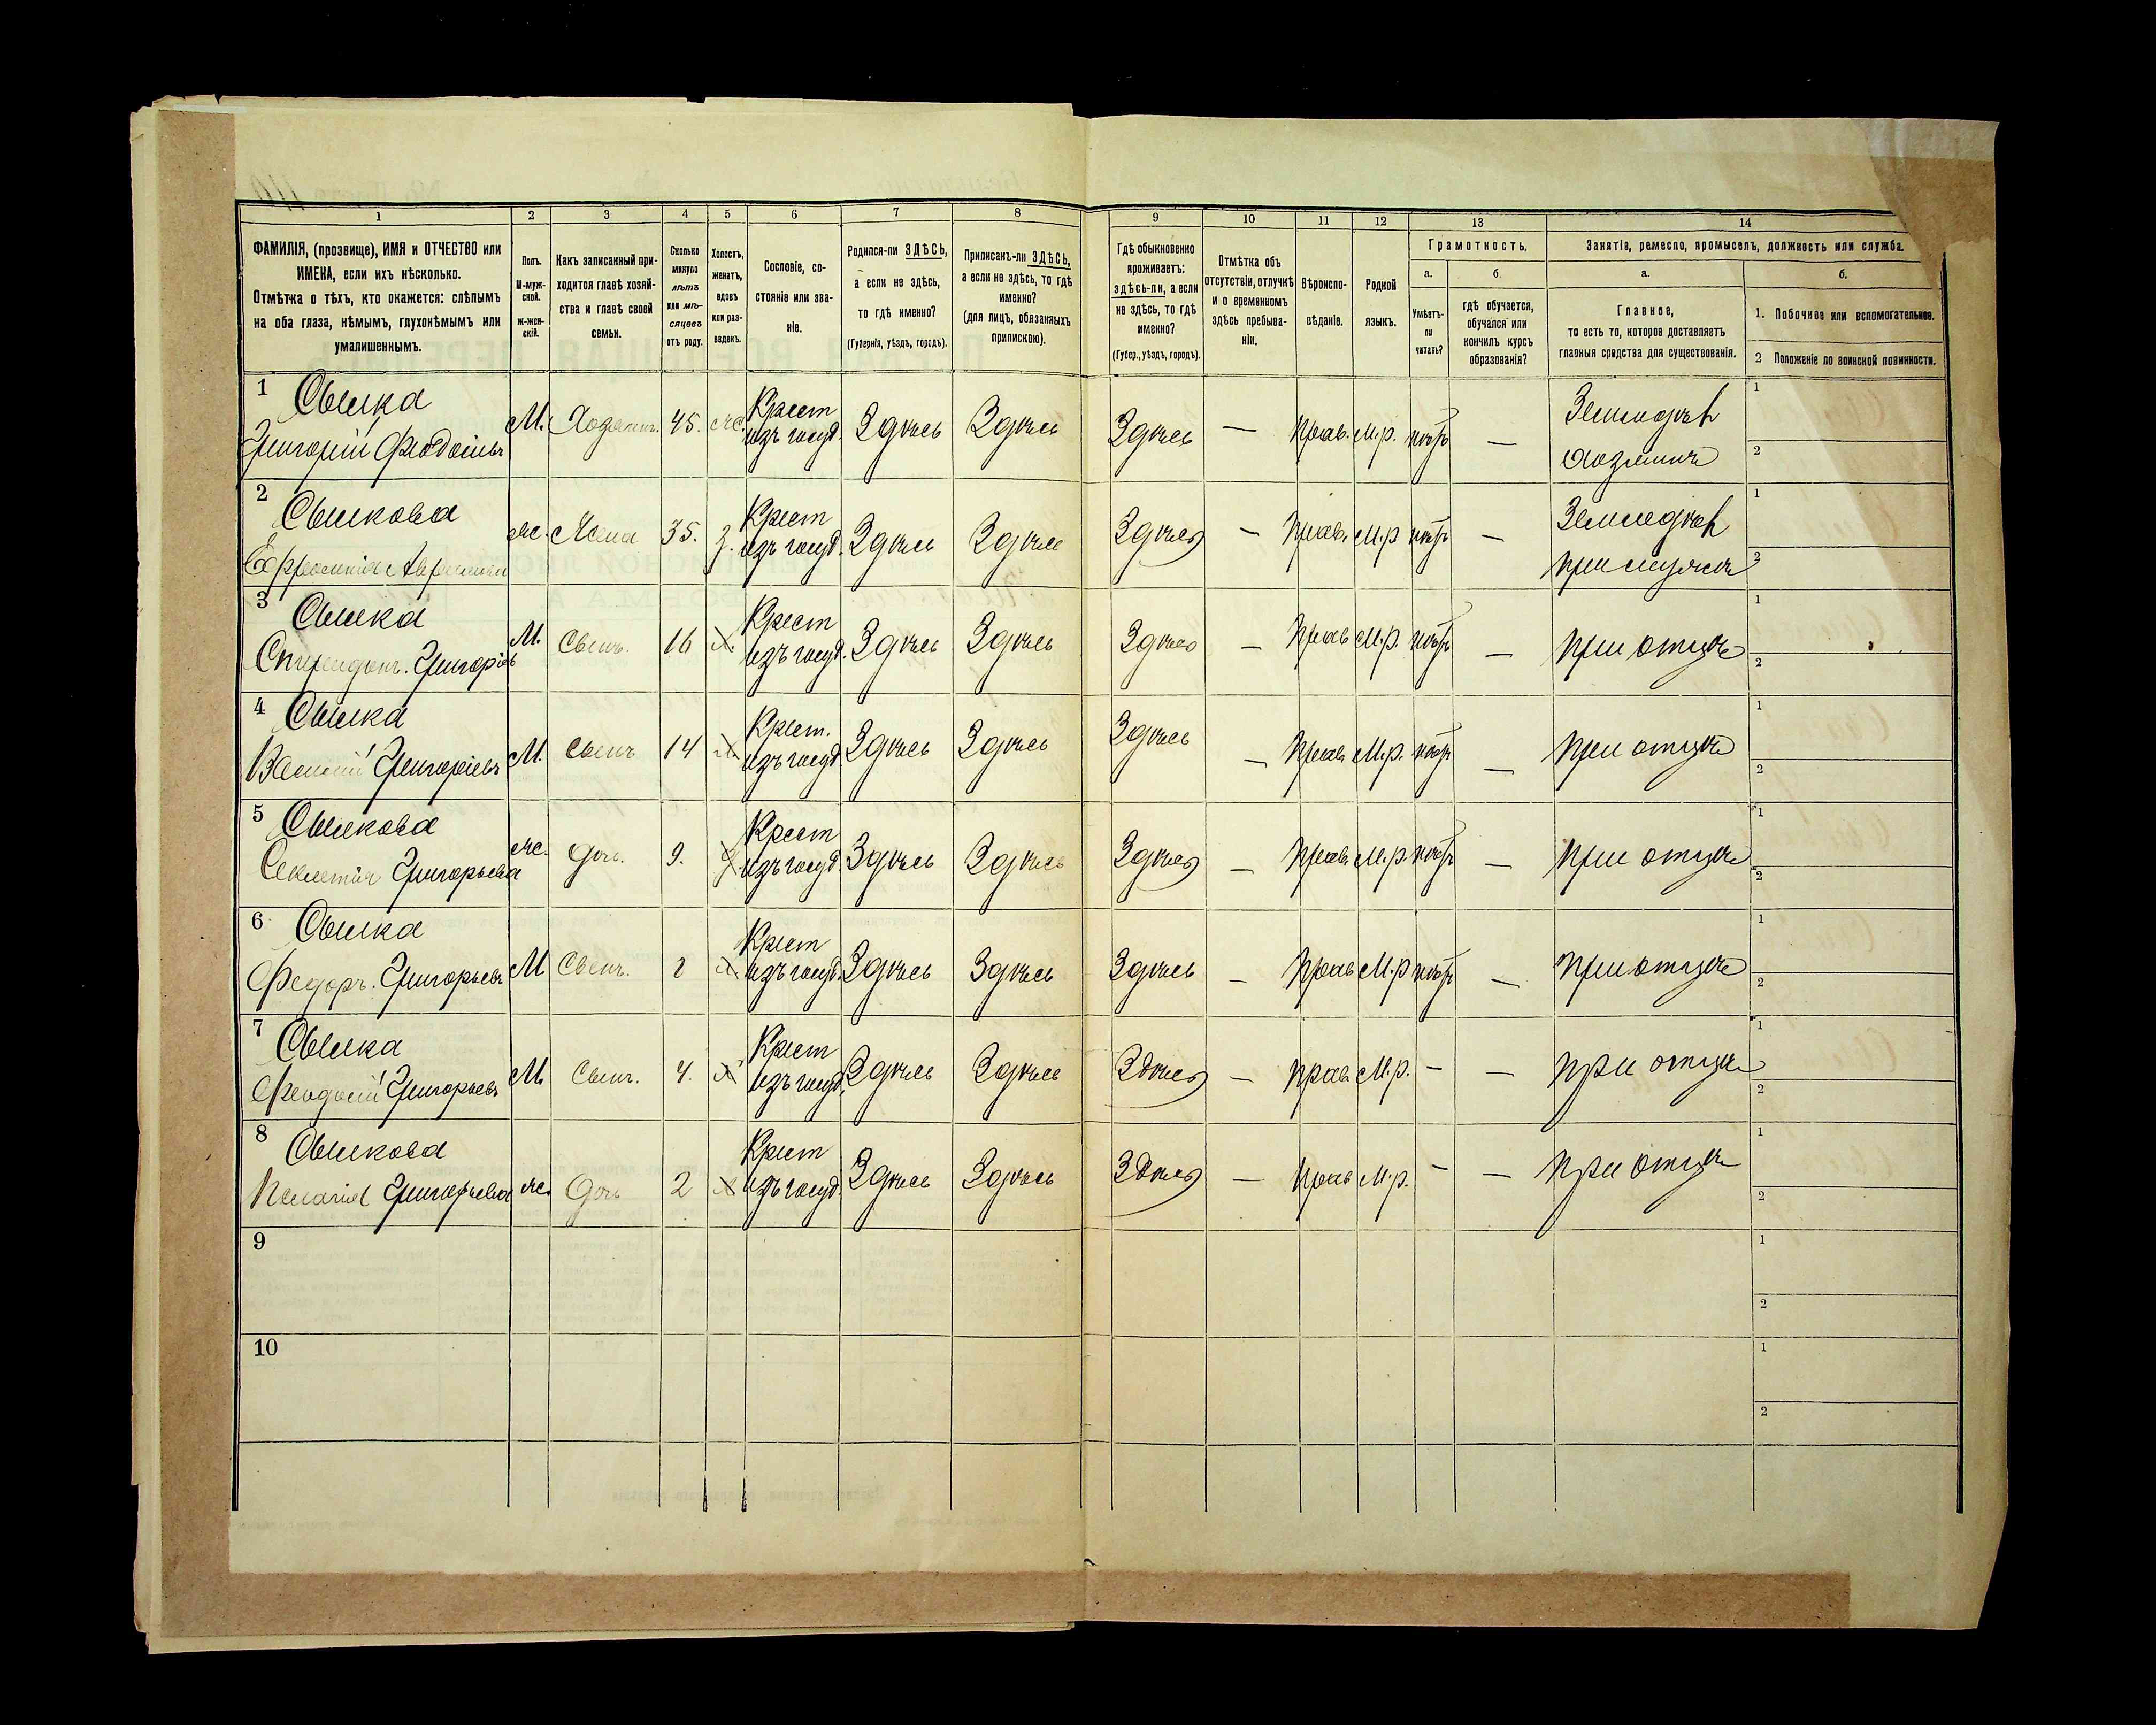 1 2 3 4 5 6 7 8 9 10 11 12 13 14
ФАМИЛІЯ, (прозвище), ИМЯ и ОТЧЕСТВО или
ИМЕНА, если ихъ нѣсколько.
Отмѣтка о тѣхъ, кто окажется: слѣпымъ
на оба глаза, нѣмымъ, глухонѣмымъ или
умалишеннымъ.
Полъ.
М-муж-
ской.
ж-жен-
скій.
Какъ записанный при-
ходится главѣ хозяй-
ства и главѣ своей
семьи.
Сколько
минуло
лѣтъ
или мѣ-
сяцевъ
отъ роду.
Холостъ,
женатъ,
вдовъ
или раз-
веденъ.
Сословіе, со-
стояніе или зва-
ніе.
Родился-ли ЗДѢСЬ,
а если не здѣсь,
то гдѣ именно?
(Губернія, уѣздъ, городъ).
Приписанъ-ли ЗДѢСЬ,
а если не здѣсь, то гдѣ
именно?
(для лицъ, обязанныхъ
припискою).
Гдѣ обыкновенно
проживаетъ:
здѣсь-ли, а если
не здѣсь, то гдѣ
именно?
(Губер., уѣздъ, городъ).
Отмѣтка объ
отсутствіи, отлучкѣ
и о временномъ
здѣсь пребыва-
ніи.
Вѣроиспо-
вѣданіе.
Родной
языкъ.
Грамотность.
а.
Умѣетъ-
ли
читать?
б
гдѣ обучается,
обучался или
кончилъ курсъ
образованія?
Занятіе, ремесло, промыселъ, должность или служба.
а.
Главное,
то есть то, которое доставляетъ
главныя средства для существованія.
б.
1. Побочное или вспомогательное.
2 Положеніе по воинской повинности.
1 Свилка Крест Земледѣл 1
Григорій М. Хозяинъ. 45. ж. изъ госуд. Здѣсь Здѣсь Здѣсь — Прав. М.р. нѣтъ — хозяинъ 2
2 Свилкова Крест Земледѣл 1
ж. Жена 35. з. изъ госуд. Здѣсь Здѣсь Здѣсь — Прав. М.р нѣтъ — при мужѣ 2
3 Свилка Крест 1
Спиридонъ. Григорьев М. Сынъ. 16 х. изъ госуд. Здѣсь Здѣсь Здѣсь — Прав М.р. нѣтъ — при отцѣ 2
4 Свилка Крест. 1
Василій Григоріевъ М. Сынъ 14 х. изъ госуд Здѣсь Здѣсь Здѣсь — Прав М.р. нѣтъ — при отцѣ 2
5 Свилкова Крест 1
Григорьева ж. дочь. 9. изъ госуд Здѣсь Здѣсь Здѣсь — Прав М.р. нѣтъ — при отцѣ 2
6 Свилка Крест 1
Федоръ. Григорьевъ М Сынъ. х. изъ госуд Здѣсь Здѣсь Здѣсь — Прав М.р нѣтъ — при отцѣ 2
7 Свилка Крест 1
Феодосій Григорьевъ М. Сынъ. 4. х изъ госуд. Здѣсь Здѣсь Здѣсь — прав М.р. — — при отцѣ 2
8 Свилкова Крест 1
Пелагія Григорьева ж. дочь 2 изъ госуд. Здѣсь Здѣсь Здѣсь — Прав М.р. — — при отцѣ 2
9 1
2
10 1
2